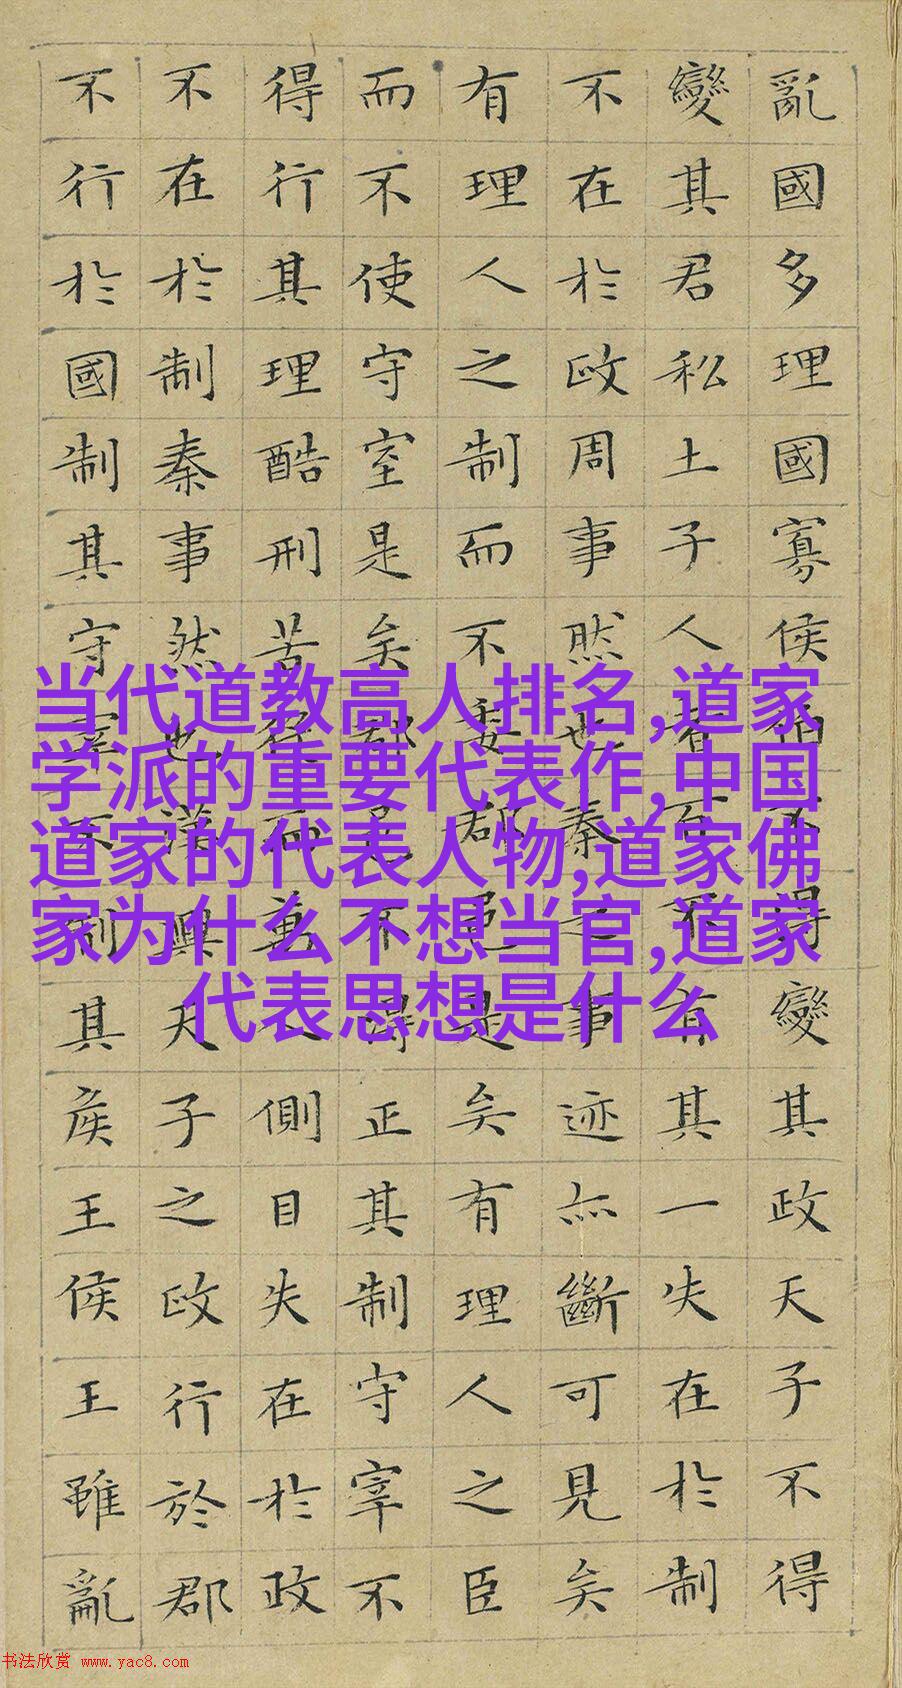 亂國多理國寡侯伯不得變其政天子不得
變其君私土子人者百不有其一失在於制
不在於政周事然也秦之事迹亦斷可見矣
有理人之制而不委郡邑是矣有理人之臣
而不使守宰是矣郡邑不得正其制守宰不
得行其理酷刑苦役而萬人側目失在於政
不在於制秦事然也漢興天子之政行於郡
不行於國制其守宰不制其侯王侯王雖亂
当代道教高人排名,道家
学派的重要代表作,中国
道家的代表人物,道家佛
家为什么不想当官,道家
代表思想是什么
书法欣赏 www.yac8.com